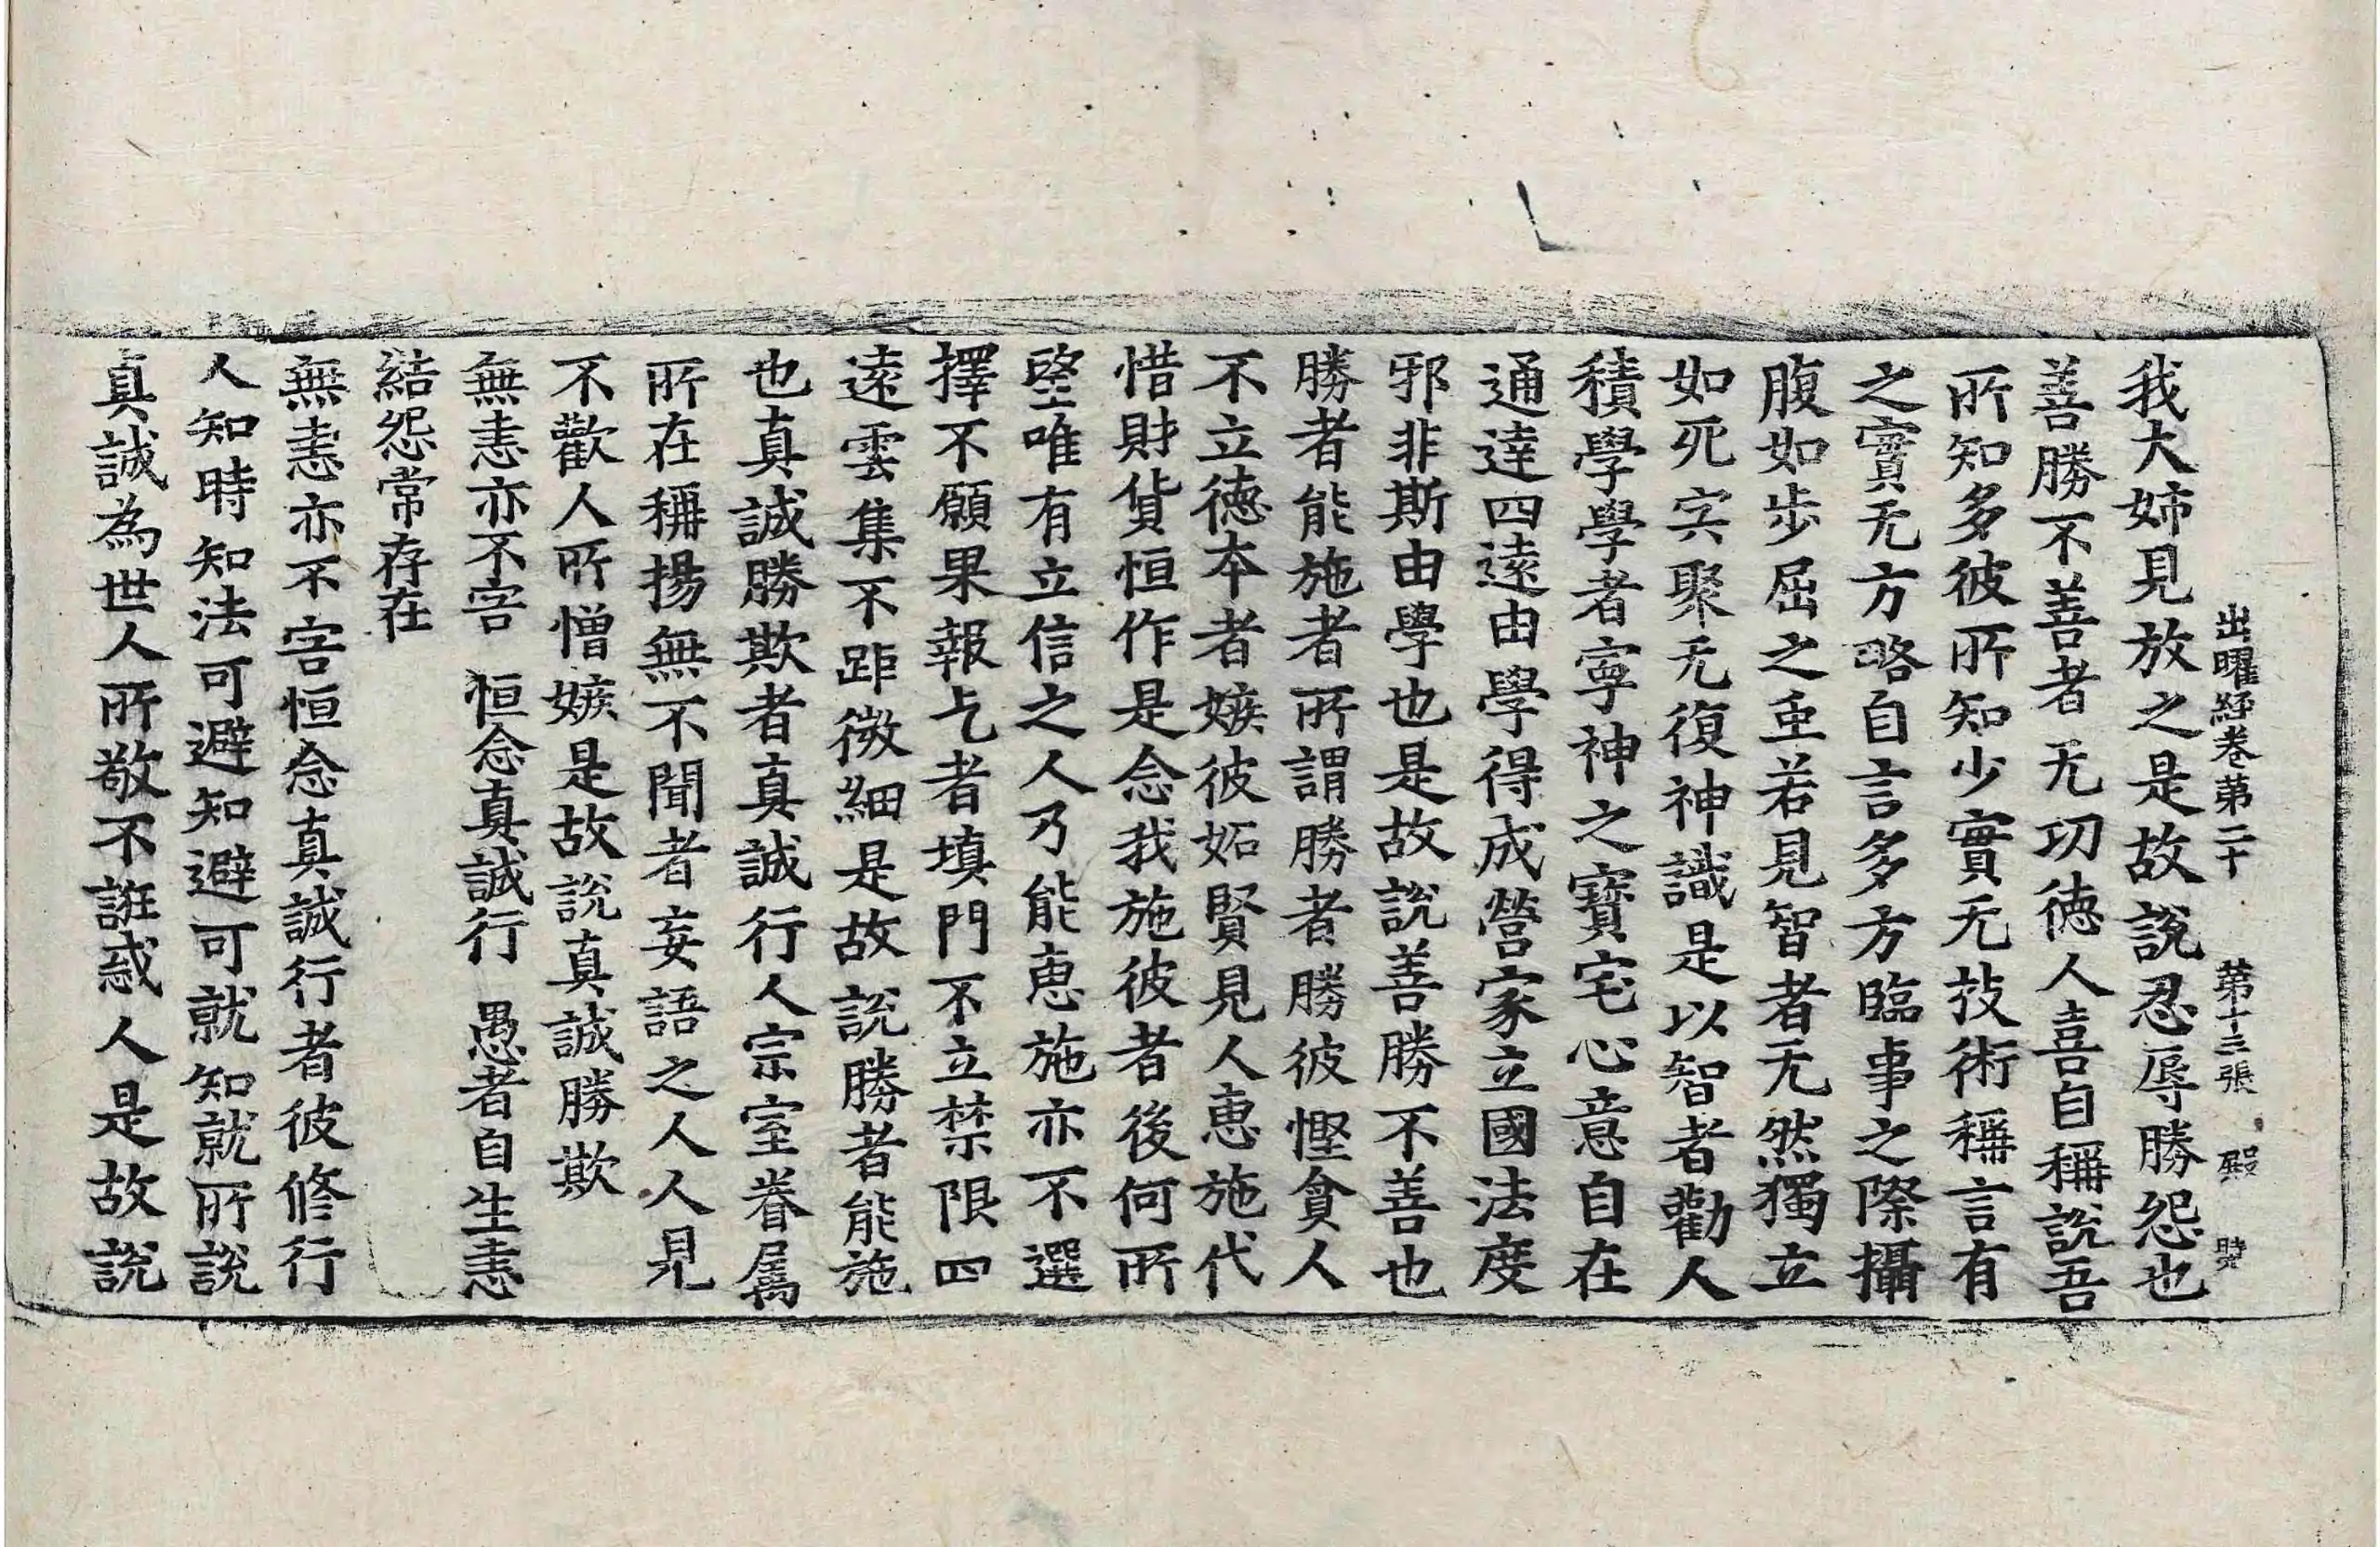 出曜經卷第二十 第十三張 殿
我大姉見放之是故說忍辱勝怨也
善勝不善者无功德人喜自稱說吾
所知多彼所知少實无技術稱言有
之實无方略自言多方臨事之際攝
腹如步屈之虫若見智者无然獨立
如死灾聚无復神識是以智者勸人
積學學者寧神之寶宅心意自在
通達四遠由學得成營家立國法度
邪非斯由學也是故說善勝不善也
勝者能施者所謂勝者勝彼慳貪人
不立德本者嫉彼妬賢見人惠施代
惜財貨恒作是念我施彼者後何所
望唯有立信之人乃能惠施亦不選
擇不願果報乞者填門不立禁限四
遠雲集不距微細是故說勝者能施
也真誠勝欺者真誠行人宗室眷屬
所在稱揚無不聞者妄語之人人見
不歡人所憎嫉是故說真誠勝欺
無恚亦不害 恒念真誠行 愚者自生恚
結怨常存在
無恚亦不害恒念真誠行者彼修行
人知時知法可避知避可就知就所說
真誠為世人所敬不誑惑人是故說